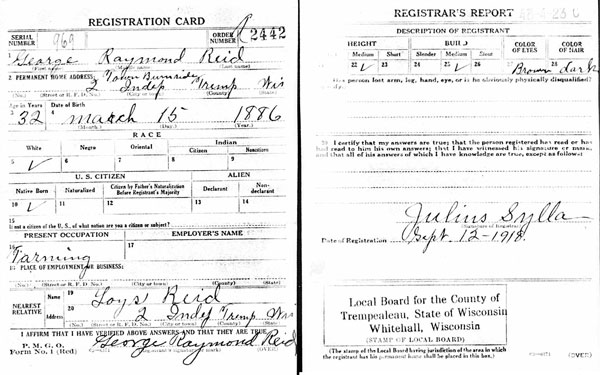 REGISTRATION CARD
SERIAL NUMBER 969 ORDER NUMBER 2442
1 George Raymond Reid
(First name) (Middle name) (Last name)
2 PERMANENT HOME ADDRESS: Town Burnside
2 Indep Tremp Wis
(No.) (Street or R. F. D. No.) (City or town) (County) (State)
Age in Years Date of Birth
3 32 4 March 15 1886
(Month.) (Day.) (Year.)
RACE
White Negro Oriental Indian
Citizen Noncitizen
5 ✓ 6 7 8 9
U. S. CITIZEN ALIEN
Native Born Naturalized Citizen by Father's Naturalization Before Registrant's Majority Declarant Non-declarant
10 ✓ 11 12 13 14
15
If not a citizen of the U. S., of what nation are you a citizen or subject?
PRESENT OCCUPATION EMPLOYER'S NAME
16 Farming 17
18 PLACE OF EMPLOYMENT OR BUSINESS:
(No.) (Street or R. F. D. No.) (City or town) (County) (State)
NEAREST RELATIVE Name 19 Loys Reid
Address 20 2 Indep Tremp Wis
(No.) (Street or R. F. D. No.) (City or town) (County) (State)
I AFFIRM THAT I HAVE VERIFIED ABOVE ANSWERS AND THAT THEY ARE TRUE
P. M. G. O.
Form No. 1 (Red) George Raymond Reid
(Registrant's signature or mark) (OVER)
REGISTRAR'S REPORT
DESCRIPTION OF REGISTRANT
HEIGHT BUILD COLOR OF EYES COLOR OF HAIR
Tall Medium Short Slender Medium Stout
21 22 ✓ 23 24 25 ✓ 26 27 Brown 28 dark
29 Has person lost arm, leg, hand, eye, or is he obviously physically disqualified?
30 I certify that my answers are true; that the person registered has read or has
had read to him his own answers; that I have witnessed his signature or mark,
and that all of his answers of which I have knowledge are true, except as follows:
Julius Sylla
(Signature of Registrar)
Date of Registration Sept. 12-1918.
Local Board for the County of
Trempealeau, State of Wisconsin
Whitehall, Wisconsin
(STAMP OF LOCAL BOARD)
(The stamp of the Local Board having jurisdiction of the area in which
the registrant has his permanent home shall be placed in this box.) (OVER)